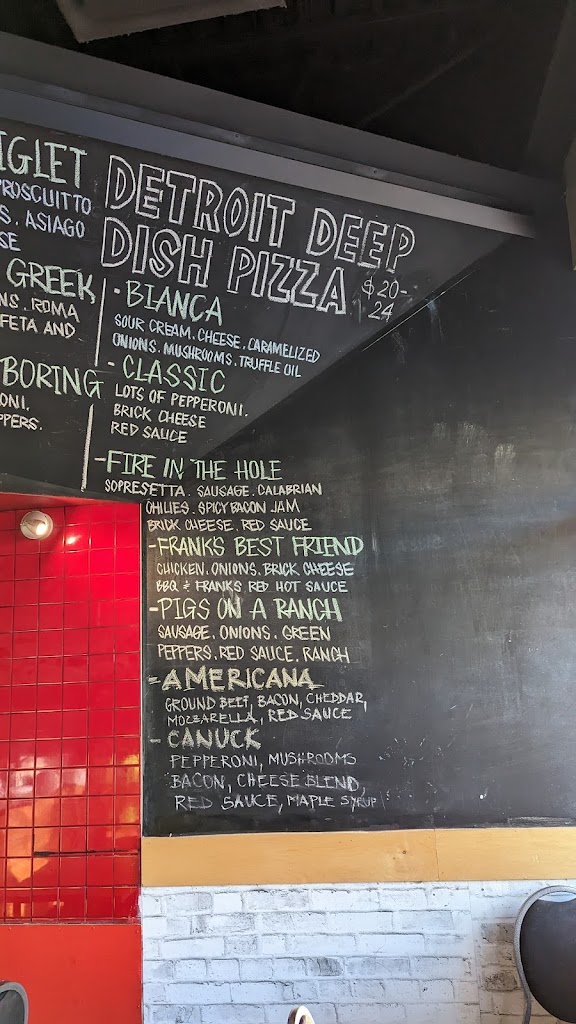 IGLET
PROSCUITTO
S, ASIAGO
SE
GREEK
NS, ROMA
FETA AND
BORING
ONI,
PPERS.
DETROIT DEEP
DISH PIZZA $20-
24
- BIANCA
SOUR CREAM, CHEESE, CARAMELIZED
ONIONS, MUSHROOMS, TRUFFLE OIL
- CLASSIC
LOTS OF PEPPERONI,
BRICK CHEESE
RED SAUCE
- FIRE IN THE HOLE
SOPRESETTA, SAUSAGE, CALABRIAN
CHILIES, SPICY BACON JAM
BRICK CHEESE, RED SAUCE
- FRANK'S BEST FRIEND
CHICKEN, ONIONS, BRICK CHEESE
BBQ & FRANKS RED HOT SAUCE
- PIGS ON A RANCH
SAUSAGE, ONIONS, GREEN
PEPPERS, RED SAUCE, RANCH
- AMERICANA
GROUND BEEF, BACON, CHEDDAR,
MOZZARELLA, RED SAUCE
- CANUCK
PEPPERONI, MUSHROOMS
BACON, CHEESE BLEND,
RED SAUCE, MAPLE SYRUP